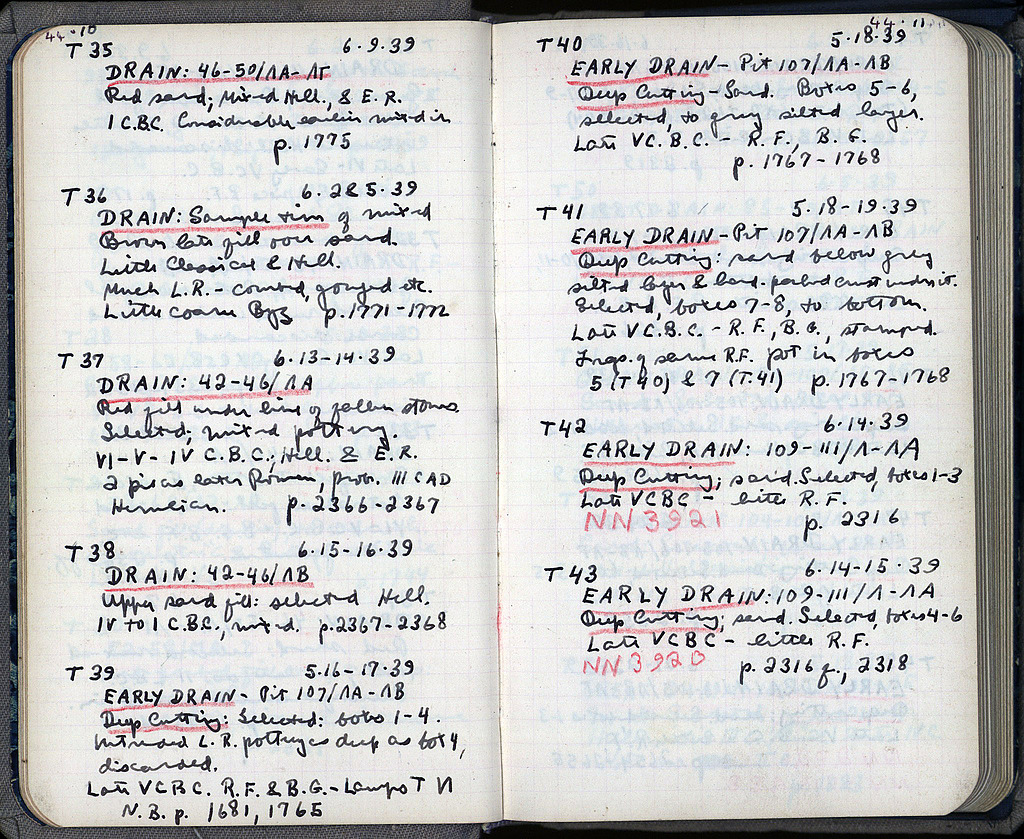 44·10
T 35 6·9·39
DRAIN: 46-50/ΛΑ-ΛΓ
Red sand; Mixed Hell., & E. R.
I C.B.C. Considerable earlier mixed in
p. 1775
T 36 6·2&5·39
DRAIN: Sample tins of mixed
Brown late fill over sand.
Little Classical & Hell.
Much L.R. - combed, gouged etc.
Little coarse Byz p. 1771-1772
T 37 6·13-14·39
DRAIN: 42-46/ΛΑ
Red fill under line of fallen stones
Selected; mixed pottery.
VI-V-IV C.B.C.; Hell. & E.R.
2 pieces later Roman, prob. III CAD
Herulian. p. 2366-2367
T 38 6·15-16·39
DRAIN: 42-46/ΛΒ
Upper sand fill: selected Hell.
IV to I C.B.C., mixed. p.2367-2368
T 39 5·16-17·39
EARLY DRAIN - Pit 107/ΛΑ-ΛΒ
Deep Cutting: Selected: boxes 1-4.
Intrusive L.R. pottery as deep as box 4,
discarded.
Late V C B C. R.F. & B.G. - Lamps T VI
N.B. p. 1681, 1765
44·11
T 40 5·18·39
EARLY DRAIN - Pit 107/ΛΑ-ΛΒ
Deep Cutting - Sand. Boxes 5-6,
selected, to grey silted layer.
Late V C. B. C. - R. F., B. G.
p. 1767-1768
T 41 5·18-19·39
EARLY DRAIN - Pit 107/ΛΑ-ΛΒ
Deep Cutting: sand below grey
silted layer & hard-packed crust under it.
Selected, boxes 7-8, to bottom.
Late V C.B.C. - R.F., B.G., stamped.
Frags. of same R.F. pot in boxes
5 (T 40) & 7 (T.41) p. 1767-1768
T 42 6·14·39
EARLY DRAIN: 109-111/Λ-ΛΑ
Deep Cutting; sand. Selected, boxes 1-3
Late V C B C - little R. F.
NN 3921 p. 2316
T 43 6·14-15·39
EARLY DRAIN: 109-111/Λ-ΛΑ
Deep Cutting; sand. Selected, boxes 4-6
Late V C B C - little R. F.
NN 3920 p. 2316 f., 2318